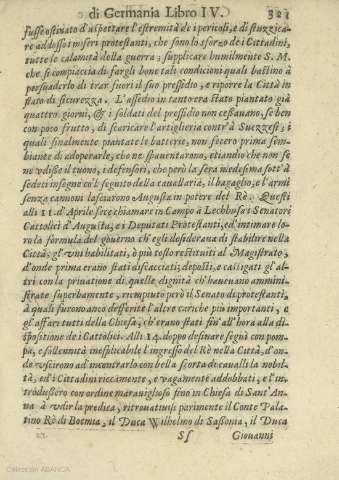 di Germania Libro IV. 321
fusse ostinato d'aspettare l'estremità de i pericoli, e di stuzzica-
re addosso i miseri protestanti, che sono lo sforzo de i Cittadini,
tutte le calamità della guerra; supplicare humilmente S. M.
che si compiaccia di fargli bone tali condicioni quali bastino à
persuaderlo di trar fuori il suo pressidio, e riporre la Città in
stato di sicurezza. L'assedio in tanto era stato piantato già
quattro giorni, & i soldati del pressidio non cessauano, se ben
con poco frutto, di scaricare l'artiglieria contr'à Suezzesi; i
quali finalmente piantate le batterie, non fecero prima sem-
biante di adoperarle, che ne spauentarono, etiandio che non se
ne vdisse il tuono, i defensori, che però la sera medesima sott'à
sedeci insegne co'l seguito della cauallaria, il bagaglio, e l'armi
senza cannoni lasciarono Augusta in potere del Rè. Questi
alli 11. d'Aprile fece chiamare in Campo à Lechhusa i Senatori
Cattolici d'Augusta, e i Deputati Protestanti, ed'intimare lo-
ro la formula del gouerno ch'egli desideraua di stabilire nella
Città; gl'vni habilitati, ò più tosto restituiti al Magistrato,
d'onde prima erano stati discacciati; deposti, e castigati gl'al-
tri con la priuatione di quelle dignità ch'haueuano ammini-
strate superbamente, riempiuto però il Senato di protestanti,
à quali furono anco desserite l'altre cariche più importanti, e
gl'affari tutti della Chiesa, ch'erano stati fin'all'hora alla di-
spositione de i Cattolici. Alli 14. doppo desinare seguì con pom-
pa, e sollennità inesplicabile l'ingresso del Rè nella Città, d'on-
de vscirono ad incontrarlo con bella scorta de caualli la nobil-
tà, ed i Cittadini riccamente, e vagamente addobbati, e l'in-
trodussero con ordine marauiglioso fino in Chiesa di Sant'An-
na à vdir la predica, ritrouatiuisi parimente il Conte Pala-
tino Rè di Boemia, il Duca Wilhelmo di Sassonia, il Duca
Sf Giouanni
Colección ABANCA